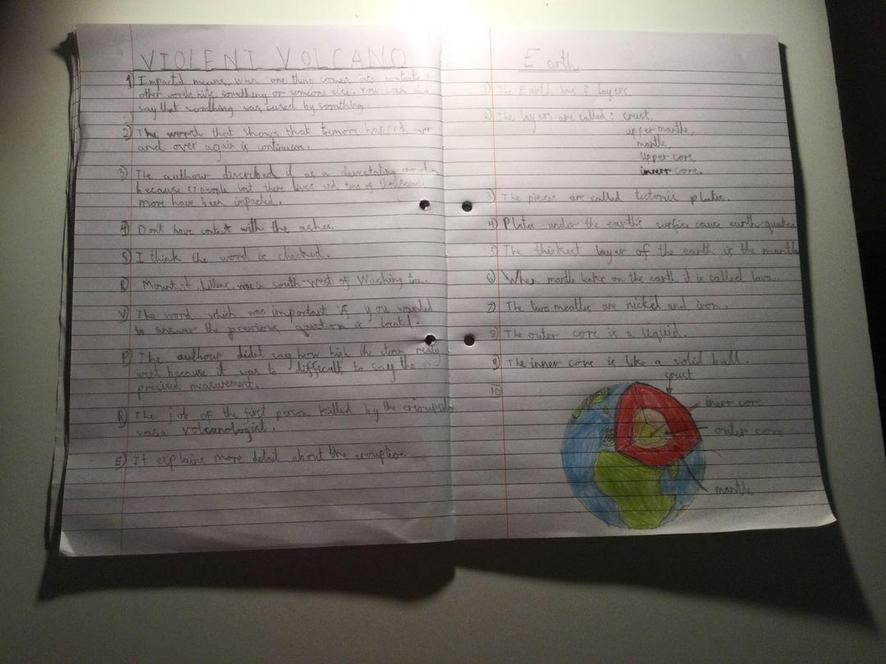 VIOLENT VOLCANO
1) Impacted means when one thing comes into contact
other words hits something or someone else. You can also
say that somthing was caused by somthing
2) The word that shows that tremors happend over
and over again is continuous.
3) The authour discribed it as a devestating
because people lost there lives and tens of thousands
more have been impacted.
4) Dont have contact with the ashes.
5) I think the word is checked.
R) Mount st. hellens was in south-west of Washing ton.
V) The word which was important if you wanted
to answer the previous question is located.
P) The authour didnt say how high the steam
went because it was to difficult to say the
precised measurement.
R) The job of the first person killed by the
was a volcanologist.
E) It explains more detail about the erruption
Earth
1) The Earth has 5 layers
2) The layers are called: crust,
upper mantle,
mantle,
upper core,
inner core.
3) The pieces are called tectonic plates
4) Plates under the earth's surface cause earth-quakes
5) The thickest layer of the earth is the mantle
6) When mantle leaks on the earth it is called lava.
7) The two meatles are nickel and iron.
8) The outer core is a liquid.
9) The inner core is like a solid ball.
10)
crust
inner core
outer core
mantle